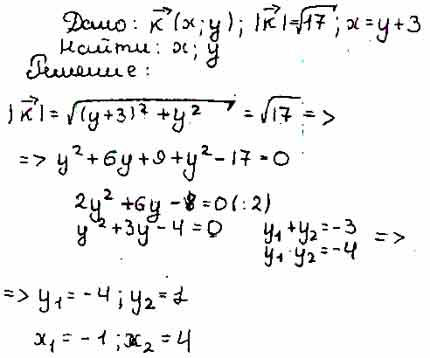 Дано: k⃗(x; y); |k⃗|=√17; x=y+3
Найти: x; y
Решение:
|k⃗|=√((y+3)²+y²) =√17 =>
=> y²+6y+9+y²-17=0
2y²+6y-8=0(:2)
y²+3y-4=0 y₁+y₂=-3 =>
y₁·y₂=-4
=> y₁=-4; y₂=1
x₁=-1; x₂=4